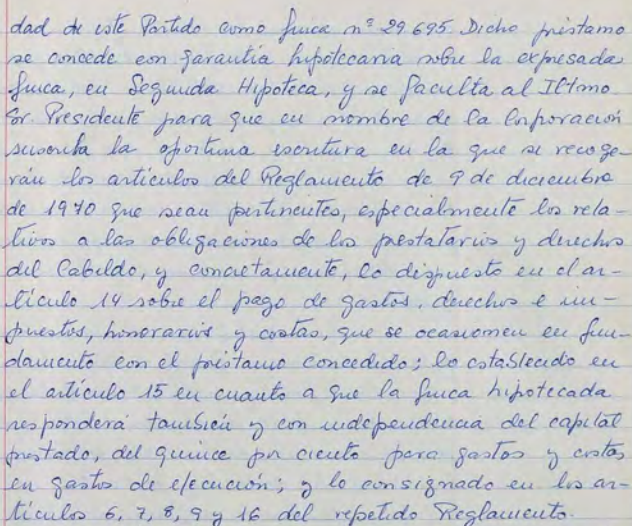 dad de este Partido como finca nº 29.695 Dicho préstamo
se concede con garantía hipotecaria sobre la expresada
finca, en Segunda Hipoteca, y se faculta al Iltmo
Sr. Presidente para que en nombre de la Corporación
suscriba la oportuna escritura en la que se recoge-
rán los artículos del Reglamento de 9 de diciembre
de 1970 que sean pertinentes, especialmente los rela-
tivos a las obligaciones de los prestatarios y derechos
del Cabildo, y concretamente, lo dispuesto en el ar-
tículo 14 sobre el pago de gastos, derechos e im-
puestos, honorarios y costas, que se ocasionen en fun-
damento con el préstamo concedido; lo establecido en
el artículo 15 en cuanto a que la finca hipotecada
responderá también y con independencia del capital
prestado, del quince por ciento para gastos y costas
en gastos de ejecución; y lo consignado en los ar-
tículos 6, 7, 8, 9 y 16 del repetido Reglamento.